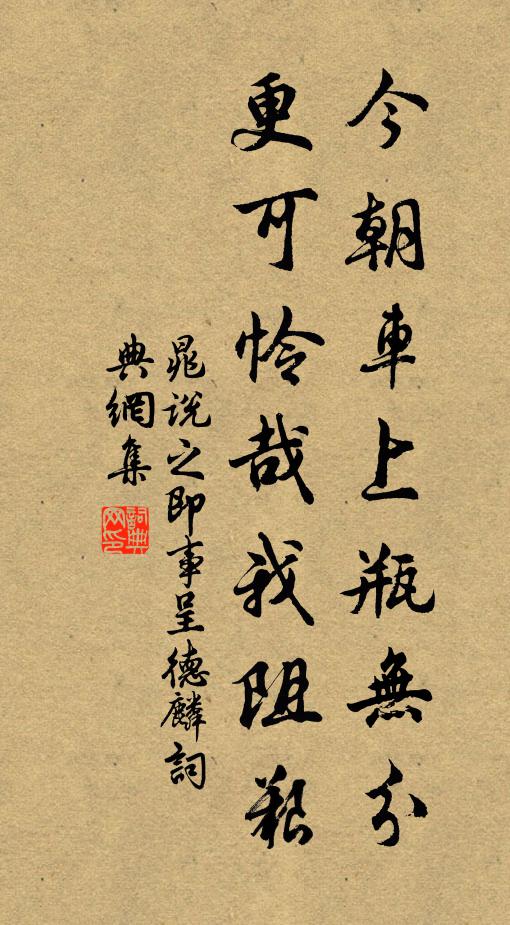 今朝車上瓶無分
更可怜哉我阻艱
晁说之即事呈德麟詞
典網集
詞典
网印